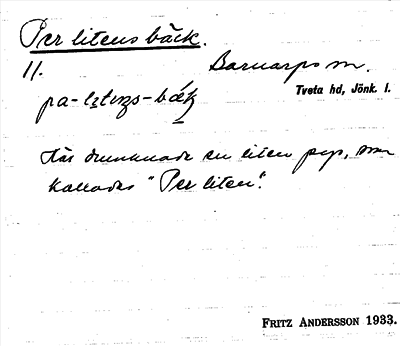 Per litens bäck.
11. Barnarps sn.
Tveta hd, Jönk. l.
Här drunknade en liten pojk, som
kallades "Per liten".
FRITZ ANDERSSON 1933.